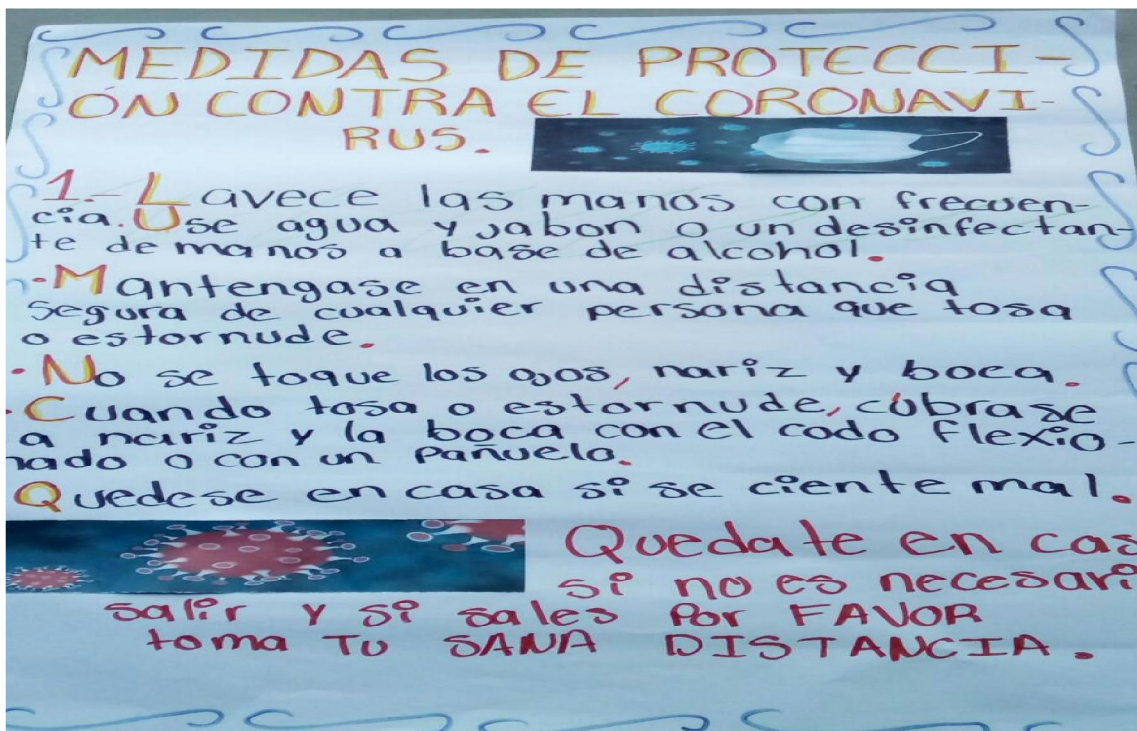 MEDIDAS DE PROTECCI-
ÓN CONTRA EL CORONAVI-
RUS.
1.- Lavece las manos con frecuen-
cia. Use agua y jabon o un desinfectan-
te de manos a base de alcohol.
• Mantengase en una distancia
segura de cualquier persona que tosa
o estornude.
• No se toque los ojos, nariz y boca.
• Cuando tosa o estornude, cúbrase
a nariz y la boca con el codo flexio-
nado o con un pañuelo.
Quedese en casa si se ciente mal.
Quedate en cas
si no es necesari
salir y si sales por FAVOR
toma TU SANA DISTANCIA.